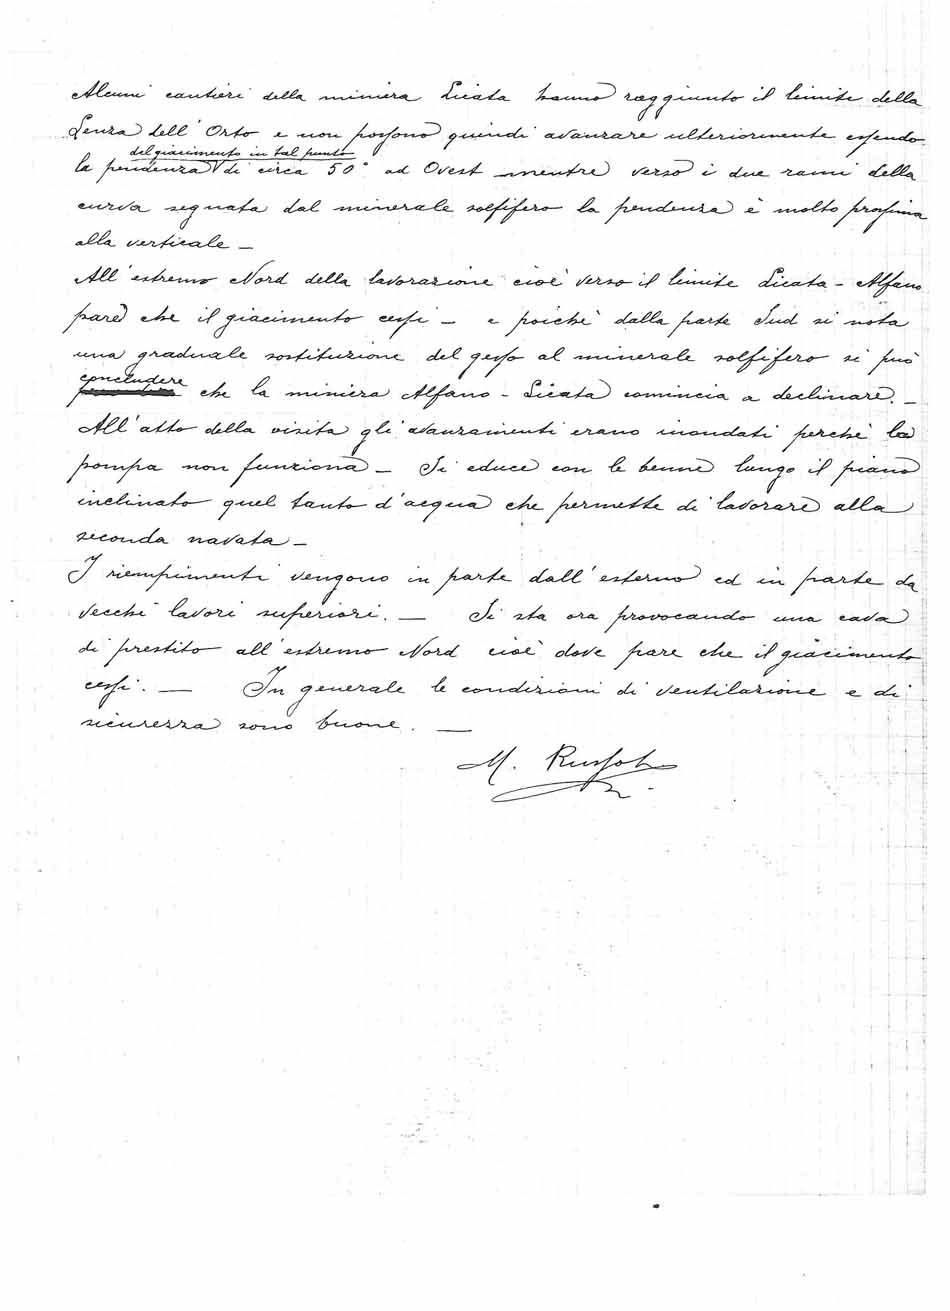 Alcuni cantieri della miniera Licata hanno raggiunto il limite della
Lenza dell'Orto e non possono quindi avanzare ulteriormente essendo
del giacimento in tal punto
la pendenza di circa 50° ad Ovest mentre verso i due rami della
curva segnata dal minerale solfifero la pendenza è molto prossima
alla verticale _
All'estremo Nord della lavorazione cioè verso il limite Licata - Alfano
pare che il giacimento cessi _ e poichè dalla parte Sud si nota
una graduale sostituzione del gesso al minerale solfifero si può
concludere
che la miniera Alfano - Licata comincia a declinare. _
All'atto della visita gli avanzamenti erano inondati perchè la
pompa non funziona _ Si educe con le benne lungo il piano
inclinato quel tanto d'acqua che permette di lavorare alla
seconda navata _
I riempimenti vengono in parte dall'esterno ed in parte da
vecchi lavori superiori. _ Si sta ora provocando una cava
di prestito all'estremo Nord cioè dove pare che il giacimento
cessi. _ In generale le condizioni di ventilazione e di
sicurezza sono buone. _
M.